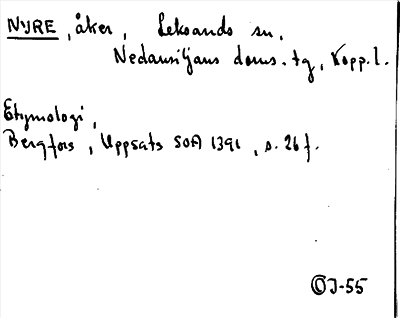 NYRE, åker, Leksands sn,
Nedansiljans doms. tg, Kopp. l.
Etymologi,
Bergfors, Uppsats SOA 1391, s. 26 f.
OJ-55